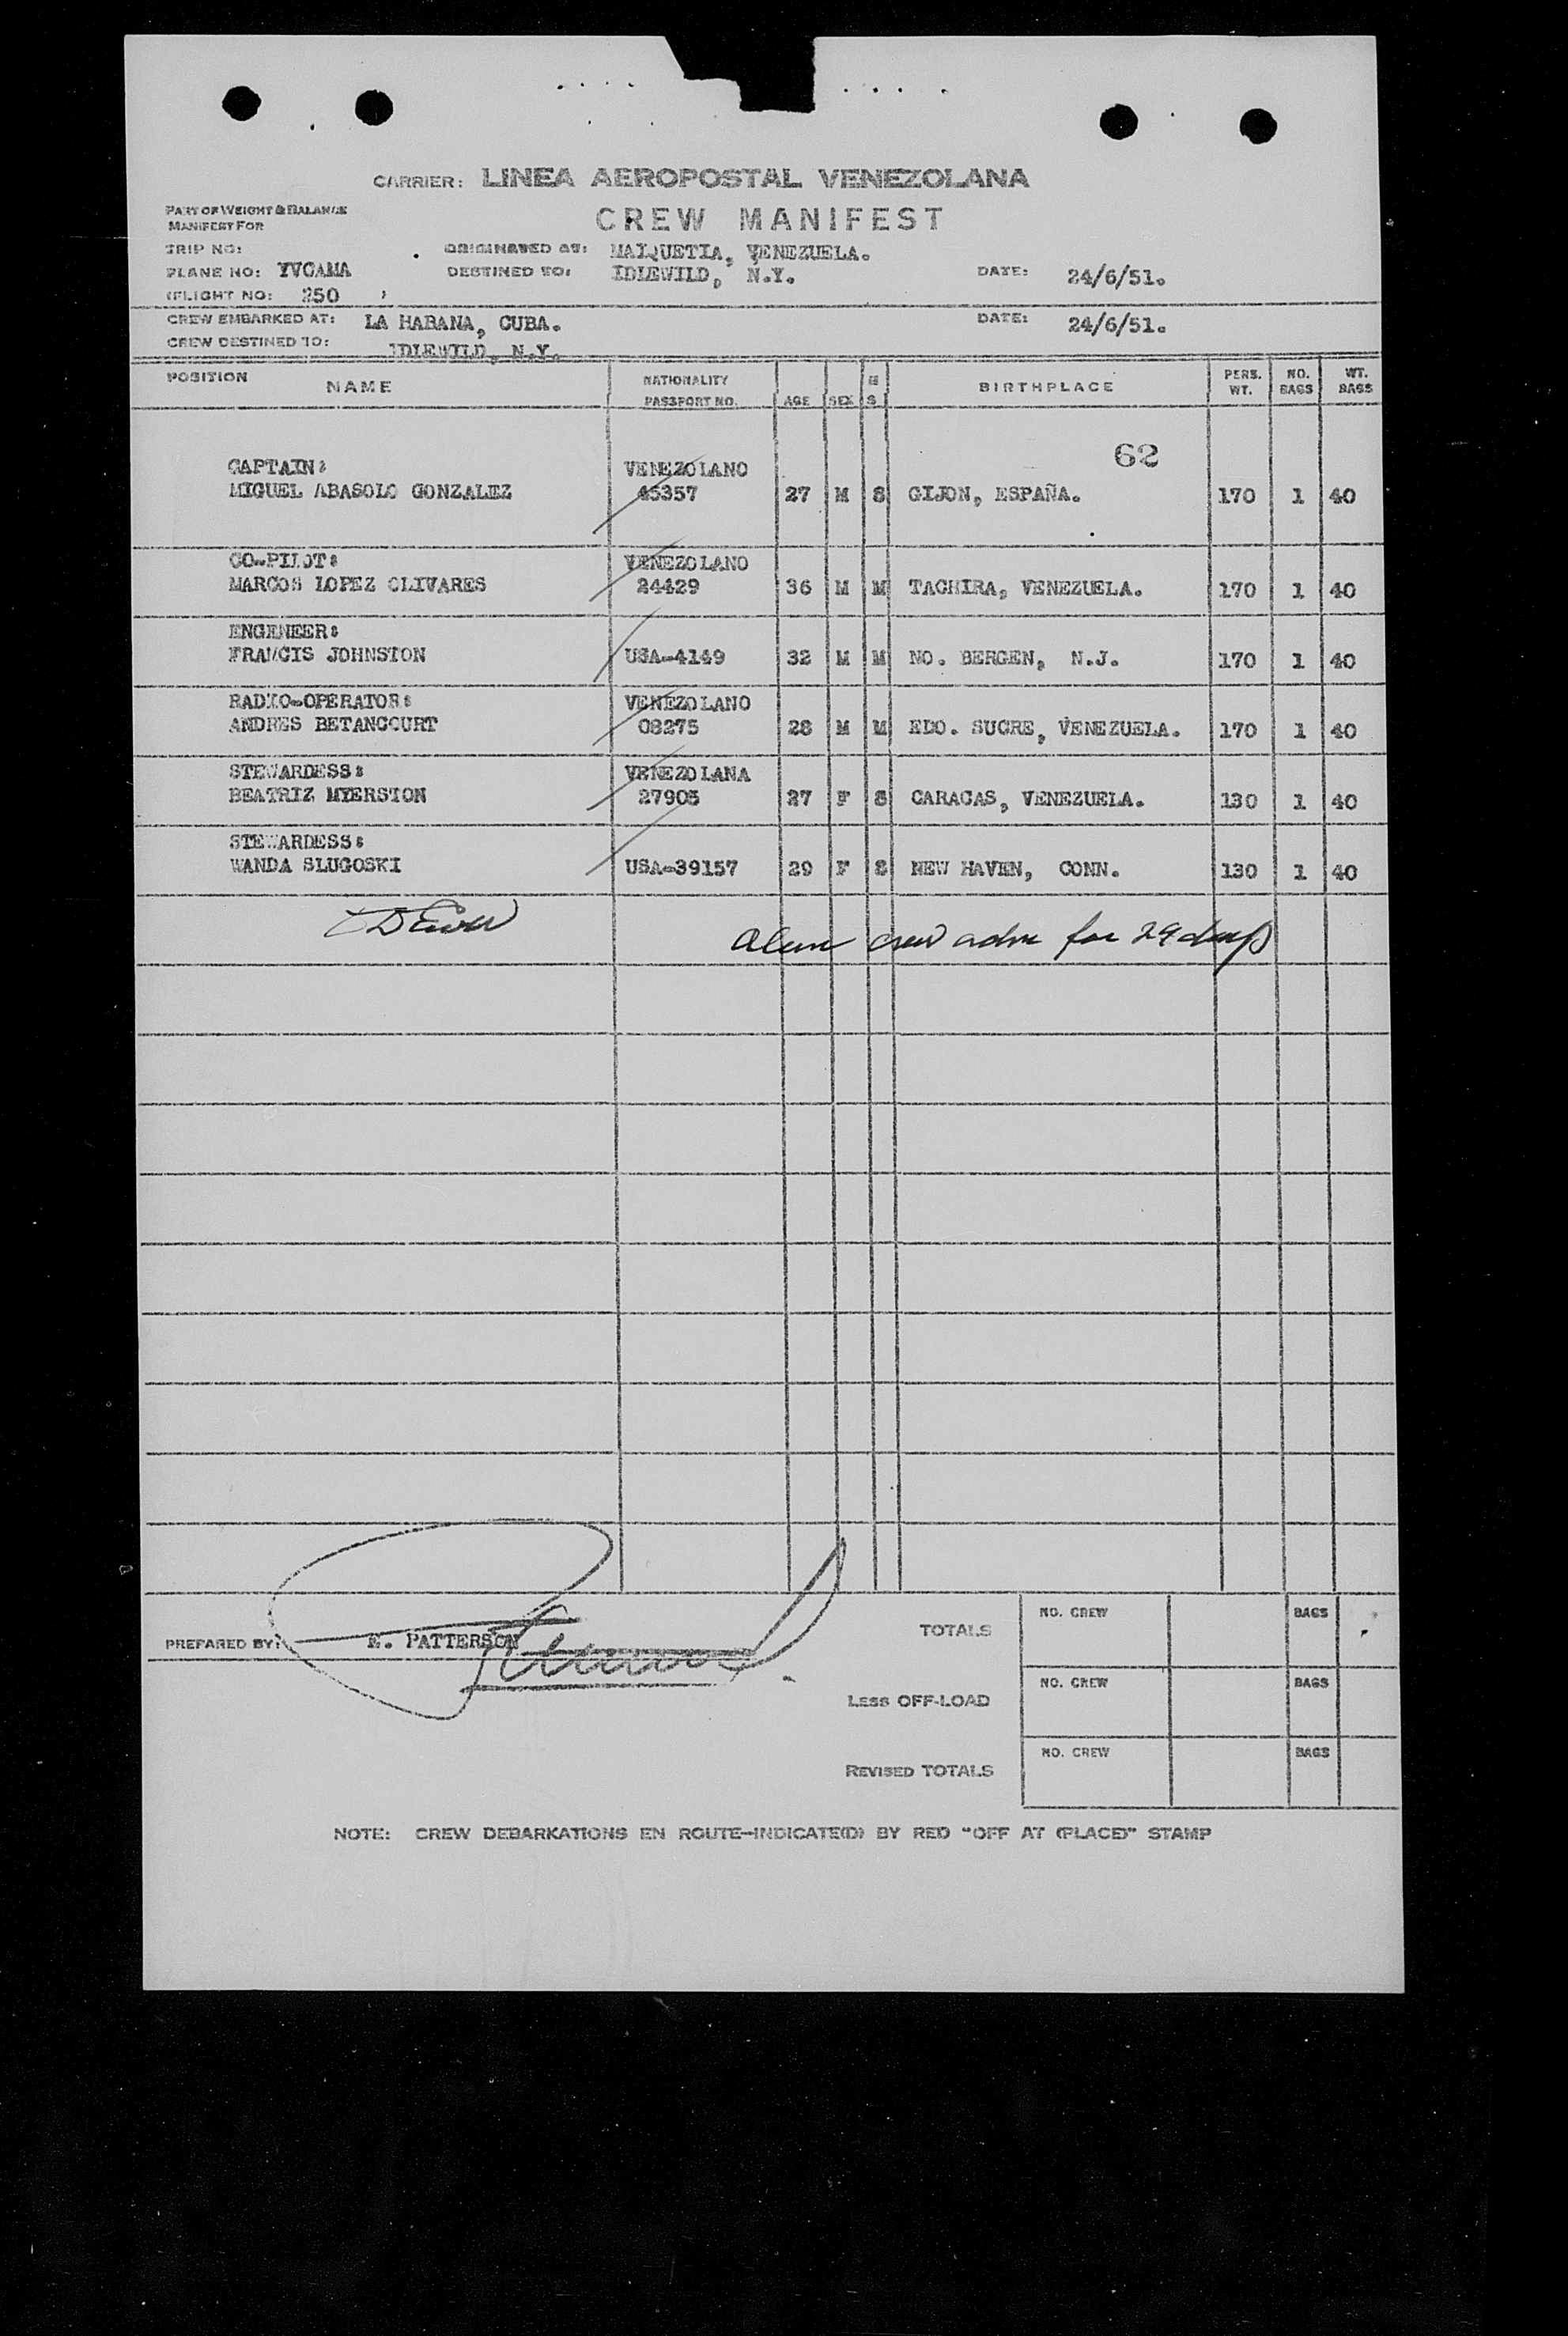 CARRIER: LINEA AEROPOSTAL VENEZOLANA
PART OF WEIGHT & BALANCE
MANIFEST FOR
CREW MANIFEST
TRIP NO:
ORIGINATED AT: MAIQUETIA, VENEZUELA.
PLANE NO: YVCAMA
DESTINED TO: IDLEWILD, N.Y.
DATE: 24/6/51.
(FLIGHT NO: 250 )
CREW EMBARKED AT: LA HABANA, CUBA.
DATE: 24/6/51.
CREW DESTINED TO: IDLEWILD, N.Y.
POSITION NAME NATIONALITY PASSPORT NO. AGE SEX M S BIRTHPLACE PERS. WT. NO. BAGS WT. BAGS
62
CAPTAIN: VENEZOLANO
MIGUEL ABASOLO GONZALEZ 45357 27 M S GIJON, ESPAÑA. 170 1 40
CO-PILOT: VENEZOLANO
MARCOS LOPEZ OLIVARES 24429 36 M M TACHIRA, VENEZUELA. 170 1 40
ENGENEER:
FRANCIS JOHNSTON USA-4149 32 M M NO. BERGEN, N.J. 170 1 40
RADIO-OPERATOR: VENEZOLANO
ANDRES BETANCOURT 08275 28 M M EDO. SUCRE, VENEZUELA. 170 1 40
STEWARDESS: VENEZOLANA
BEATRIZ MYERSTON 27905 27 F S CARACAS, VENEZUELA. 130 1 40
STEWARDESS:
WANDA SLUGOSKI USA-39157 29 F S NEW HAVEN, CONN. 130 1 40
alien crew adm for 29 days
PREPARED BY: E. PATTERSON
TOTALS NO. CREW BAGS
LESS OFF-LOAD NO. CREW BAGS
REVISED TOTALS NO. CREW BAGS
NOTE: CREW DEBARKATIONS EN ROUTE-INDICATE(D) BY RED "OFF AT (PLACE)" STAMP